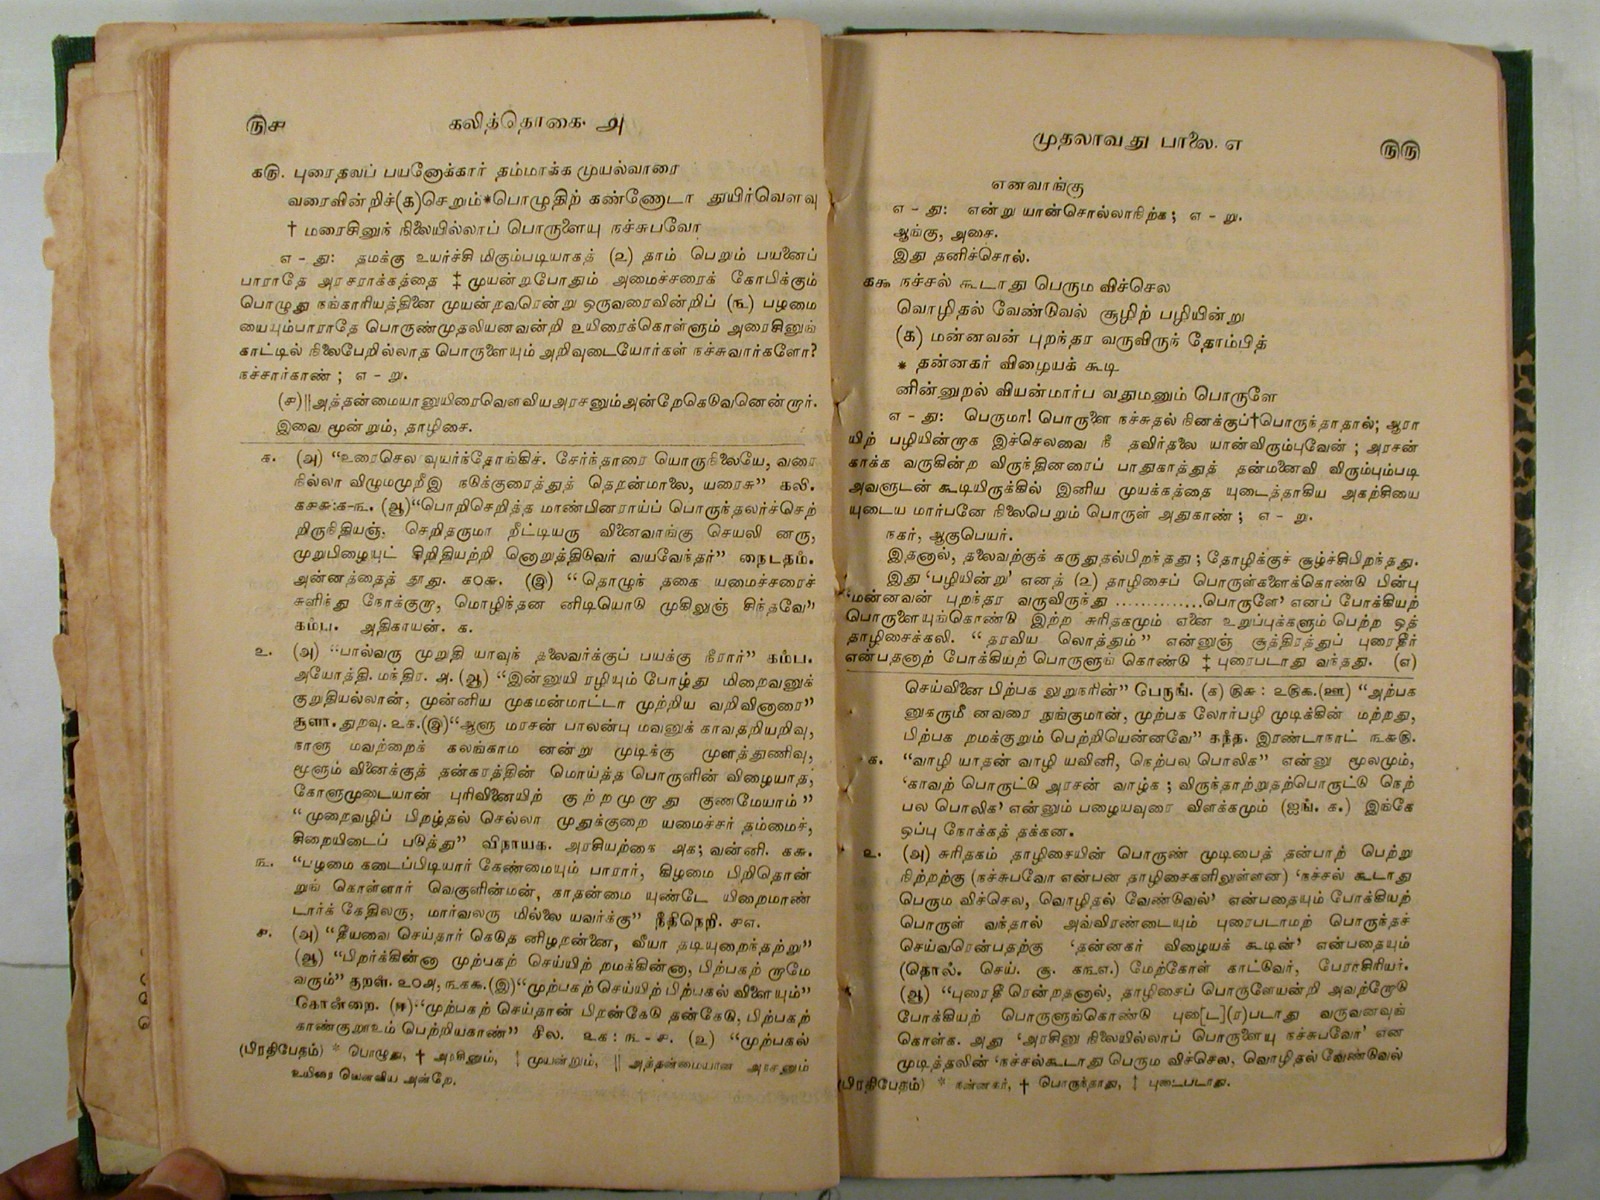 ௫௪
கலித்தொகை. ௮
க௫. புரைதவப் பயனோக்கார் தம்மாக்க முயல்வாரை
வரைவின்றிச்(க)செறும்*பொழுதிற் கண்ணோடா துயிர்வௌவு
† மரைசினுந் நிலையில்லாப் பொருளையு நச்சுபவோ
எ - து: தமக்கு உயர்ச்சி மிகும்படியாகத் (உ) தாம் பெறும் பயனைப்
பாராதே அரசராக்கத்தை ‡ முயன்றபோதும் அமைச்சரைக் கோபிக்கும்
பொழுது நங்காரியத்தினை முயன்றவரென்று ஒருவரைவின்றிப் (௩) பழமை
யையும்பாராதே பொருண்முதலியனவன்றி உயிரைக்கொள்ளும் அரைசினுங்
காட்டில் நிலைபேறில்லாத பொருளையும் அறிவுடையோர்கள் நச்சுவார்களோ?
நச்சார்காண் ; எ - று.
(௪)||அத்தன்மையானுயிரைவௌவியஅரசனும்அன்றேகெடுவனென்றார்.
இவை மூன்றும், தாழிசை.
க. (அ) “உரைசெல வுயர்ந்தோங்கிச். சேர்ந்தாரை யொருநிலையே, வரை
நில்லா விழுமமுறீஇ நடுக்குரைத்துத் தெறன்மாலை, யரைசு” கலி.
க௪௬:க-௩. (ஆ)“பொறிசெறித்த மாண்பினராய்ப் பொருந்தலர்ச்செற்
றிருநிதியஞ், செறிதருமா நீட்டியரு வினைவாங்கு செயலி னரு,
முறுபிழையுட் சிறிதியற்றி னொறுத்திடுவர் வயவேந்தர்” நைடதம்.
அன்னத்தைத் தூது. க0௬. (இ) “தொழுந் தகை யமைச்சரைச்
சுளிந்து நோக்குறா, மொழிந்தன னிடியொடு முகிலுஞ் சிந்தவே”
கம்ப. அதிகாயன். க.
உ. (அ) “பால்வரு முறுதி யாவுந் தலைவர்க்குப் பயக்கு நீரார்” கம்ப.
அயோத்தி. மந்திர. அ. (ஆ) “இன்னுயி ரழியும் போழ்து மிறைவனுக்
குறுதியல்லான், முன்னிய முகமன்மாட்டா முற்றிய வறிவினாரை”
சூளா. துறவு. உக.(இ)“ஆளு மரசன் பாலன்பு மவனுக் காவதறியறிவு,
நாளு மவற்றைக் கலங்காம னன்று முடிக்கு முளத்துணிவு,
மூளும் வினைக்குத் தன்கரத்தின் மொய்த்த பொருளின் விழையாத,
கோளுமுடையான் புரிவினையிற் குற்றமுறாது குணமேயாம்”
“முறைவழிப் பிறழ்தல் செல்லா முதுக்குறை யமைச்சர் தம்மைச்,
சிறையிடைப் படுத்து” விநாயக. அரசியற்கை அக; வன்னி. க௬.
௩. “பழமை கடைப்பிடியார் கேண்மையும் பாரார், கிழமை பிறிதொன்
றுங் கொள்ளார் வெகுளின்மன், காதன்மை யுண்டே யிறைமாண்
டார்க் கேதிலரு, மார்வலரு மில்லை யவர்க்கு” நீதிநெறி. ௪எ.
௪. (அ) “தீயவை செய்தார் கெடுத னிழறன்னை, வீயா தடியுறைந்தற்று”
(ஆ) “பிறர்க்கின்னா முற்பகற் செய்யிற் றமக்கின்னா, பிற்பகற் றாமே
வரும்” குறள். உ0அ, ௩க௯.(இ)“முற்பகற் செய்யிற் பிற்பகல் விளையும்”
கொன்றை. (ஈ)“முற்பகற் செய்தான் பிறன்கேடு தன்கேடு, பிற்பகற்
காண்குறூஉம் பெற்றியகாண்” சில. உக : ௩ - ௪. (உ) “முற்பகல்
(பிரதிபேதம்) * பொழுது, † அரசினும், ‡ முயன்றும், || அத்தன்மையான அரசனும்
உயிரை வௌவிய அன்றே.
முதலாவது பாலை. எ
௫௫
எனவாங்கு
எ - து: என்று யான்சொல்லாநிற்க ; எ - று.
ஆங்கு, அசை.
இது தனிச்சொல்.
க௯ நச்சல் கூடாது பெரும விச்செல
வொழிதல் வேண்டுவல் சூழிற் பழியின்று
(க) மன்னவன் புறந்தர வருவிருந் தோம்பித்
* தன்னகர் விழையக் கூடி
னின்னுறல் வியன்மார்ப வதுமனும் பொருளே
எ - து: பெருமா! பொருளை நச்சுதல் நினக்குப்†பொருந்தாதால்; ஆரா
யிற் பழியின்றாக இச்செலவை நீ தவிர்தலை யான்விரும்புவேன் ; அரசன்
காக்க வருகின்ற விருந்தினரைப் பாதுகாத்துத் தன்மனைவி விரும்பும்படி
அவளுடன் கூடியிருக்கில் இனிய முயக்கத்தை யுடைத்தாகிய அகற்சியை
யுடைய மார்பனே நிலைபெறும் பொருள் அதுகாண் ; எ - று.
நகர், ஆகுபெயர்.
இதனால், தலைவற்குக் கருதுதல்பிறந்தது ; தோழிக்குச் சூழ்ச்சிபிறந்தது.
இது ‘பழியின்று’ எனத் (உ) தாழிசைப் பொருள்களைக்கொண்டு பின்பு
‘மன்னவன் புறந்தர வருவிருந்து .............பொருளே’ எனப் போக்கியற்
பொருளையுங்கொண்டு இற்ற சுரிதகமும் ஏனை உறுப்புக்களும் பெற்ற ஒத்
தாழிசைக்கலி. “தரவிய லொத்தும்” என்னுஞ் சூத்திரத்துப் புரைதீர்
என்பதனாற் போக்கியற் பொருளுங் கொண்டு ‡ புரைபடாது வந்தது. (எ)
செய்வினை பிற்பக லுறுநரின்” பெருங். (க) ௫௬ : உ௫௯.(ஊ) “அற்பக
னுகருமீ னவரை நுங்குமான், முற்பக லோர்பழி முடிக்கின் மற்றது,
பிற்பக றமக்குறும் பெற்றியென்னவே” கந்த. இரண்டாநாட் ௩௬௫.
க. “வாழி யாதன் வாழி யவினி, நெற்பல பொலிக” என்னு மூலமும்,
‘காவற் பொருட்டு அரசன் வாழ்க ; விருந்தாற்றுதற்பொருட்டு நெற்
பல பொலிக’ என்னும் பழையவுரை விளக்கமும் (ஐங். க.) இங்கே
ஒப்பு நோக்கத் தக்கன.
உ. (அ) சுரிதகம் தாழிசையின் பொருண் முடிபைத் தன்பாற் பெற்று
நிற்றற்கு (நச்சுபவோ என்பன தாழிசைகளிலுள்ளன) ‘நச்சல் கூடாது
பெரும விச்செல, வொழிதல் வேண்டுவல்’ என்பதையும் போக்கியற்
பொருள் வந்தால் அவ்விரண்டையும் புரைபடாமற் பொருந்தச்
செய்வரென்பதற்கு ‘தன்னகர் விழையக் கூடின்’ என்பதையும்
(தொல். செய். சூ. க௩எ.) மேற்கோள் காட்டுவர், பேராசிரியர்.
(ஆ) “புரைதீ ரென்றதனால், தாழிசைப் பொருளேயன்றி அவற்றோடு
போக்கியற் பொருளுங்கொண்டு புரை[ட](ர)படாது வருவனவுங்
கொள்க. அது ‘அரசினு நிலையில்லாப் பொருளையு நச்சுபவோ’ என
முடித்தலின் ‘நச்சல்கூடாது பெரும விச்செல, வொழிதல் வேண்டுவல்
(பிரதிபேதம்) * நன்னகர், † பொருந்தாது, ‡ புடைபடாது.